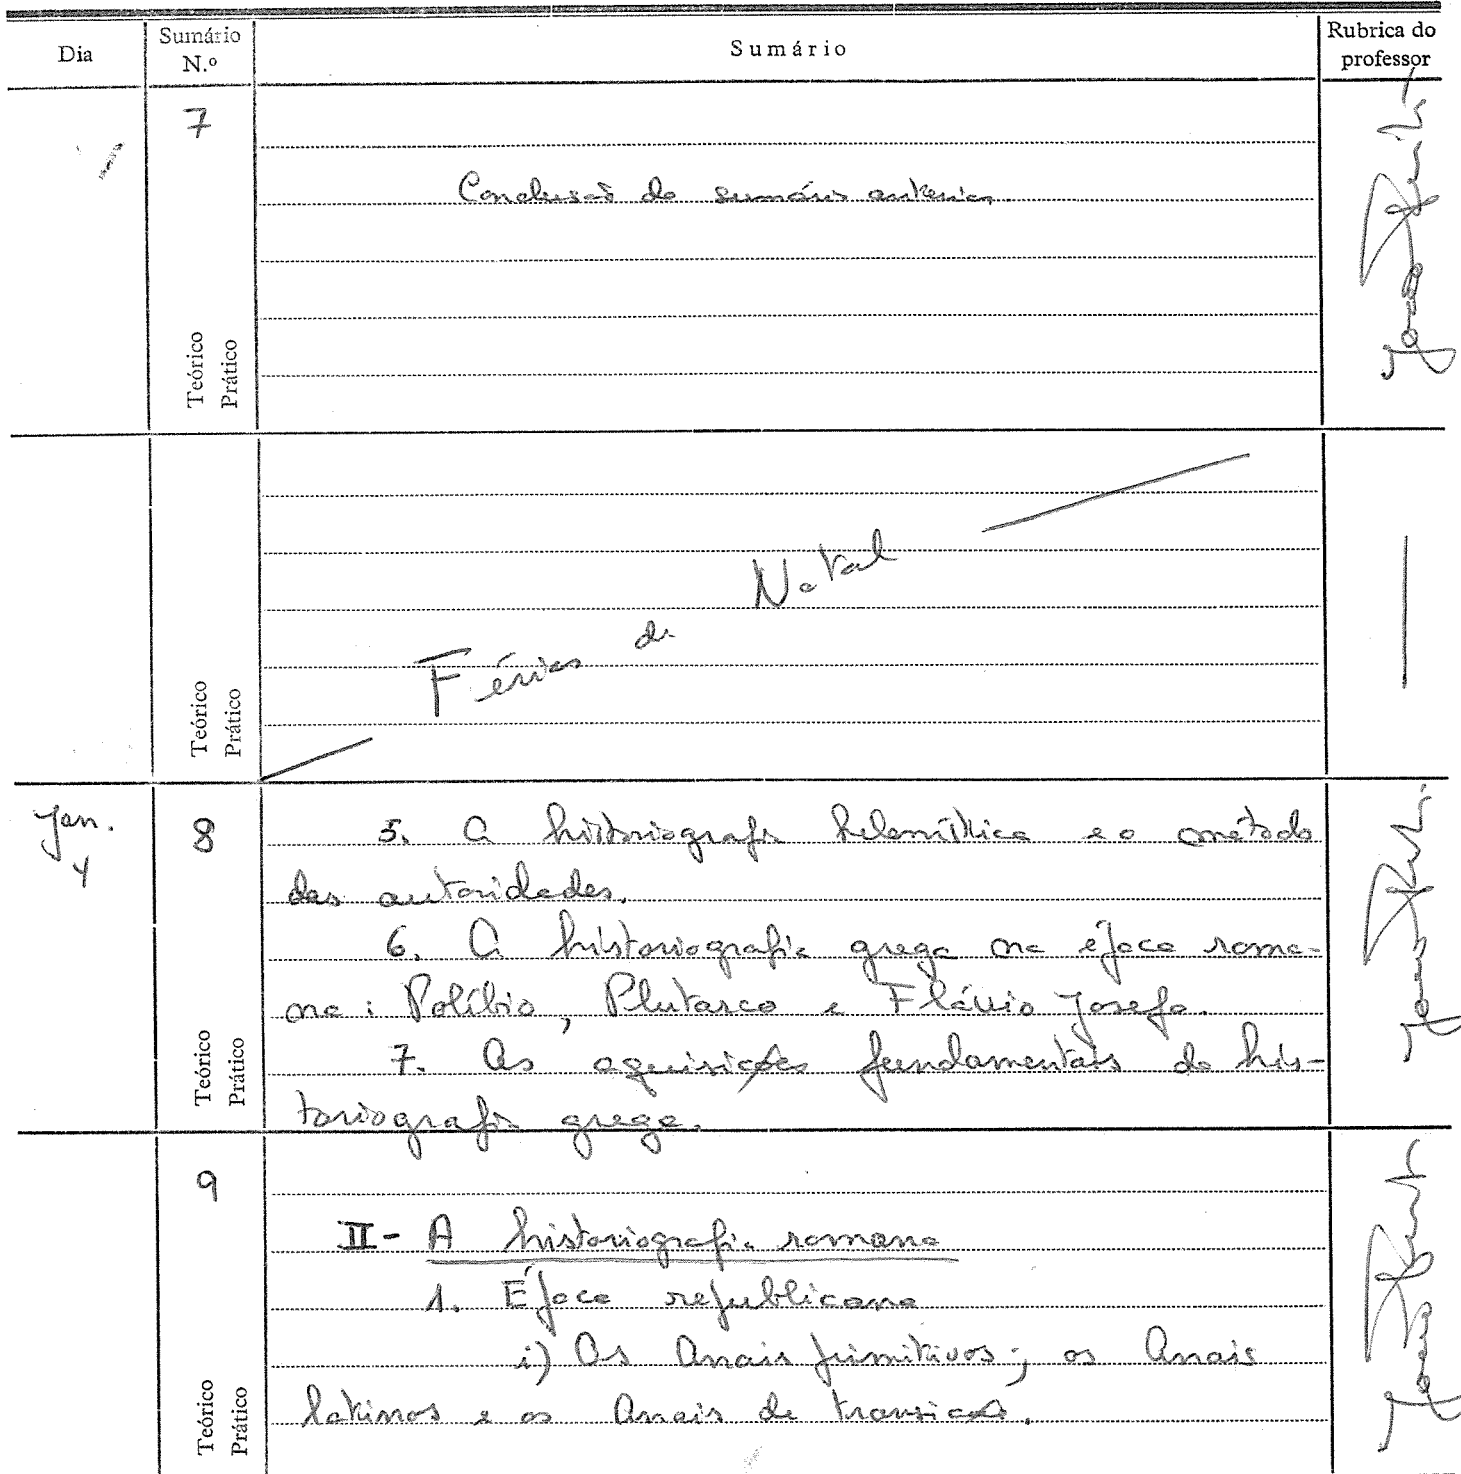 Dia
Sumário
N.º
Sumário
Rubrica do
professor
7
Conclusão do sumário anterior.
Teórico
Prático
Férias de Natal
Teórico
Prático
Jan.
4
8
5. A historiografia helenística e o método
das autoridades.
6. A historiografia grega na época roma-
na: Políbio, Plutarco e Flávio Josefo.
7. As aquisições fundamentais da his-
toriografia grega.
Teórico
Prático
9
II- A historiografia romana
1. Época republicana
i) Os Anais primitivos; os Anais
latinos e os Anais de transição.
Teórico
Prático